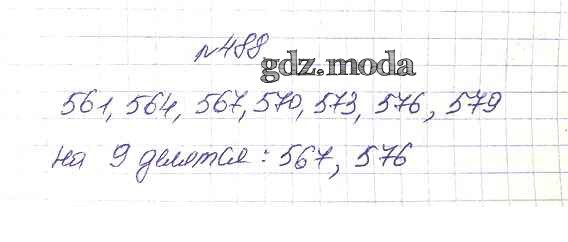 №488
gdz.moda
561, 564, 567, 570, 573, 576, 579
на 9 делятся: 567, 576